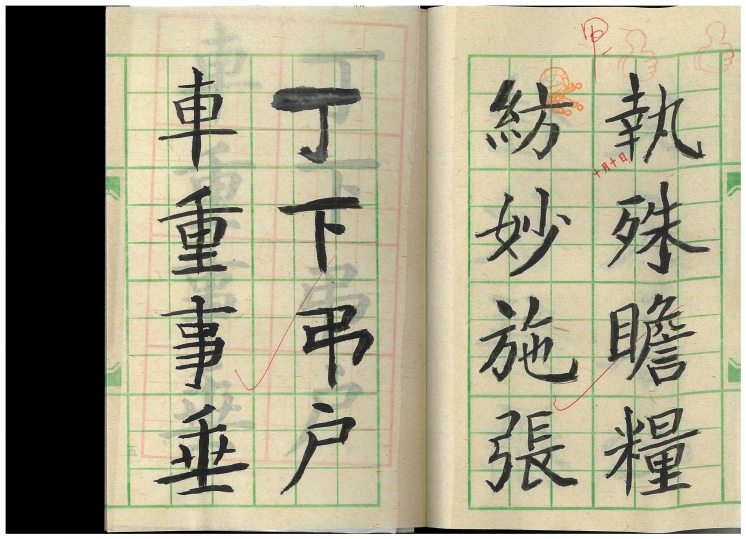 執殊瞻糧
紡妙施張
丁下弔户
車重事垂
十月十日
甲